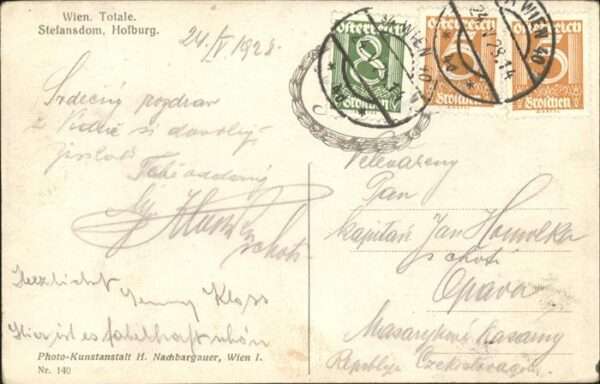 Wien. Totale.
Stefansdom, Hofburg.
24/V 1928.
Srdečný pozdrav
z Vídně si dovolují
Tobě oddaný
Herzlichst Jenny Klass
Hier ist es fabelhaft schön
Photo-Kunstanstalt H. Nachbargauer, Wien I.
Nr. 140
österreich
8
Groschen
österreich
5
Groschen
österreich
5
Groschen
WIEN 40
WIEN 40
24.V.28.14
Velevážený
Pan
kapitán Jan Homolka
s chotí
Opava
Masarykovy kasárny
Republika Czekoslovag